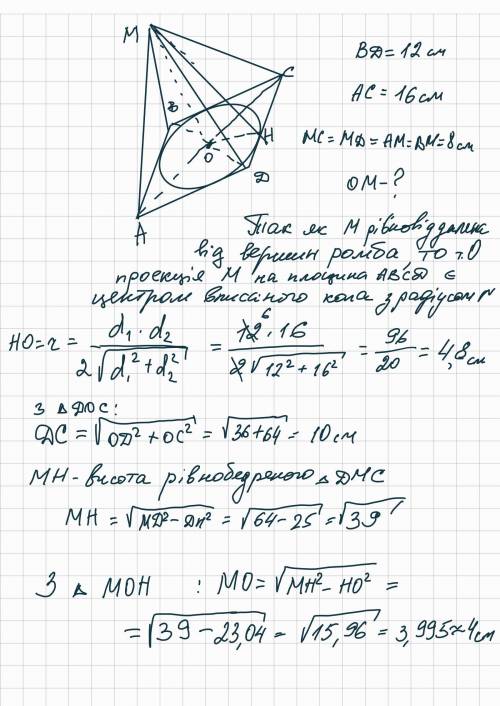 M
C
B
H
O
D
A
BD = 12 см
AC = 16 см
MC = MD = AM = BM = 8 см
OM - ?
Так як M рівновіддалена
від вершин ромба, то т. O
проекція M на площина ABCD є
центром вписаного кола з радіусом r
HO = r = d₁ · d₂ / 2√(d₁² + d₂²) = 12 · 16 / 2√(12² + 16²) = 96 / 20 = 4,8 см
6
З △DOC:
DC = √(OD² + OC²) = √(36+64) = 10 см
MH - висота рівнобедреного △ DMC
MH = √(MD² - DH²) = √(64 - 25) = √39
З △ MOH : MO = √(MH² - HO²) =
= √(39 - 23,04) = √15,96 = 3,995 ≈ 4 см